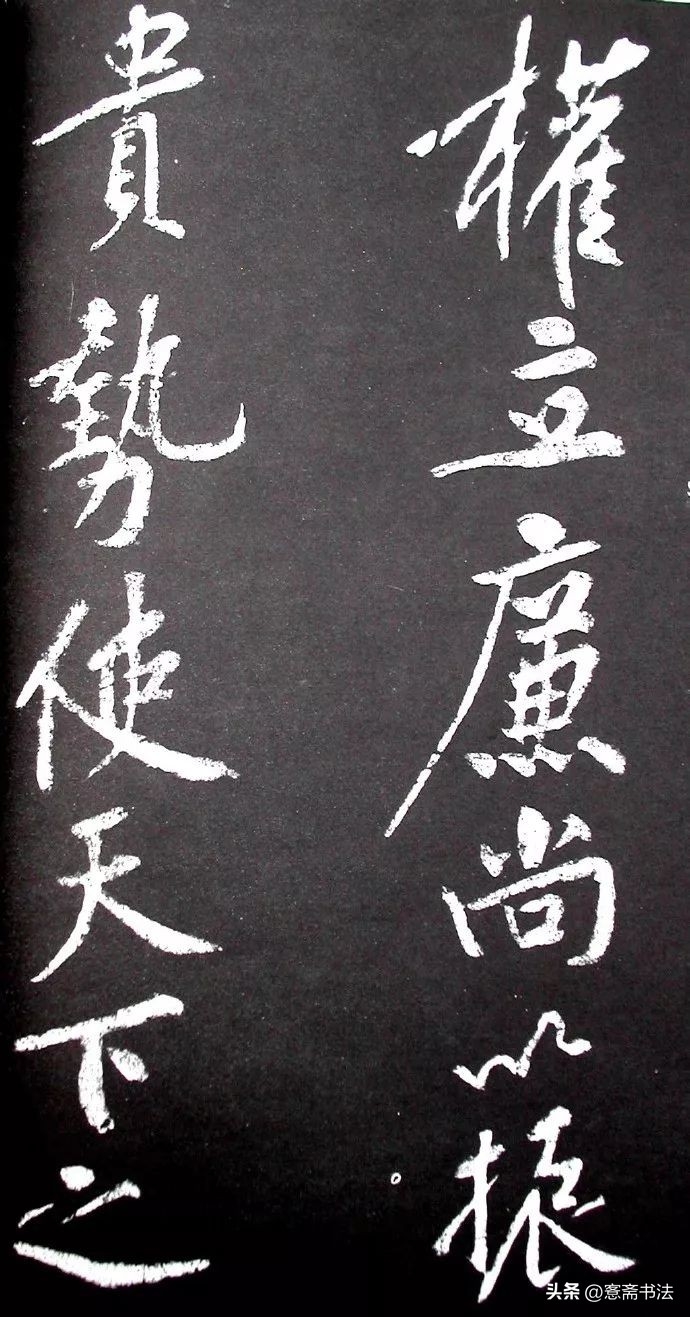 權立廉尚以振
貴勢使天下之
头条@愙斋书法